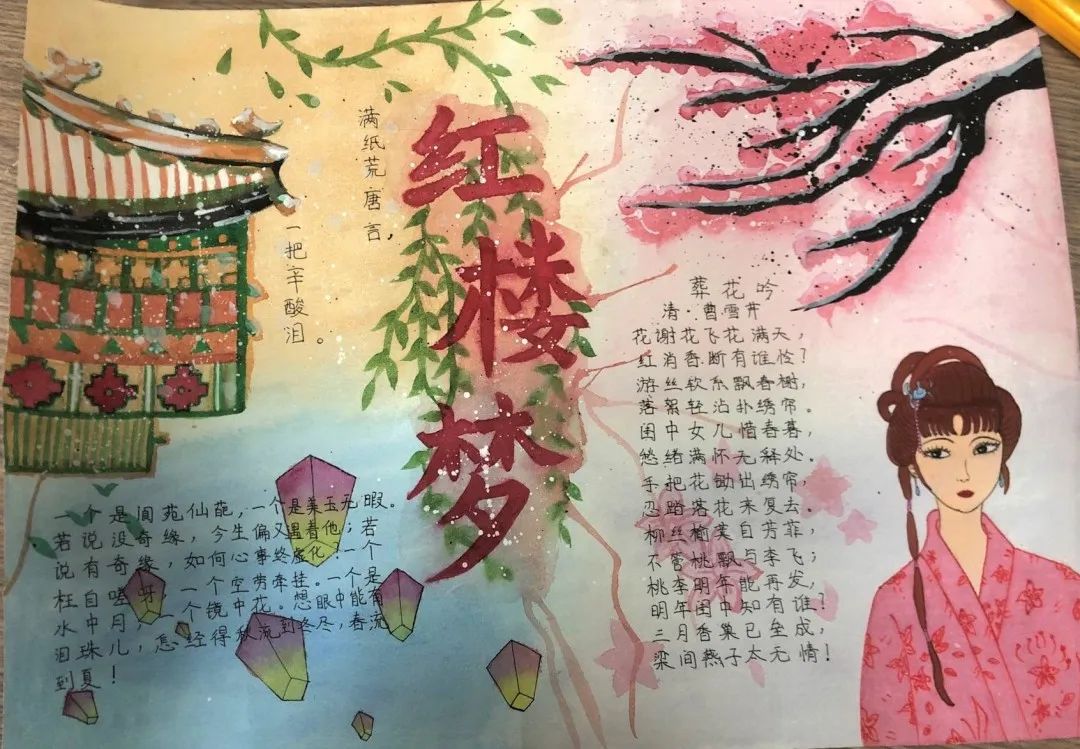 红楼梦
满纸荒唐言，
一把辛酸泪。
一个是阆苑仙葩，一个是美玉无暇。
若说没奇缘，今生偏又遇着他；若
说有奇缘，如何心事终虚化！一个
枉自嗟呀，一个空劳牵挂。一个是
水中月，一个镜中花。想眼中能有
泪珠儿，怎经得秋流到冬尽，春流
到夏！
葬花吟
清·曹雪芹
花谢花飞花满天，
红消香断有谁怜？
游丝软系飘春榭，
落絮轻沾扑绣帘。
闺中女儿惜春暮，
愁绪满怀无释处。
手把花锄出绣帘，
忍踏落花来复去。
柳丝榆荚自芳菲，
不管桃飘与李飞；
桃李明年能再发，
明年闺中知有谁？
三月香巢已垒成，
梁间燕子太无情！